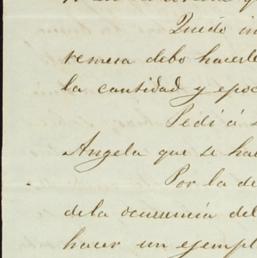 Quedo in
remesa debo hacerle
la cantidad y epoc
Pedi á
Angela que se ha
Por la de
dela ocurrencia del
hacer un ejempl